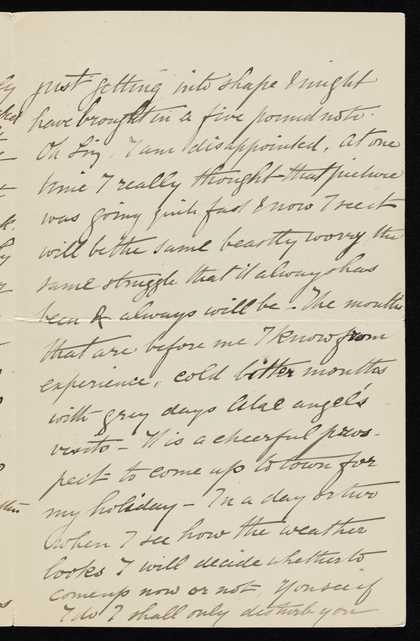 just getting into shape I might
have brought in a five pound note.
Oh Liz, I am disappointed. At one
time I really thought that picture
was going quite fast & now I see it
will be the same beastly worry the
same struggle that it always has
been & always will be. The months
that are before me I know from
experience, cold bitter months
with grey days like angel's
visits - It is a cheerful pros-
pect to come up to town for
my holiday - In a day or two
when I see how the weather
looks I will decide whether to
come up now or not. You see if
I do I shall only disturb you